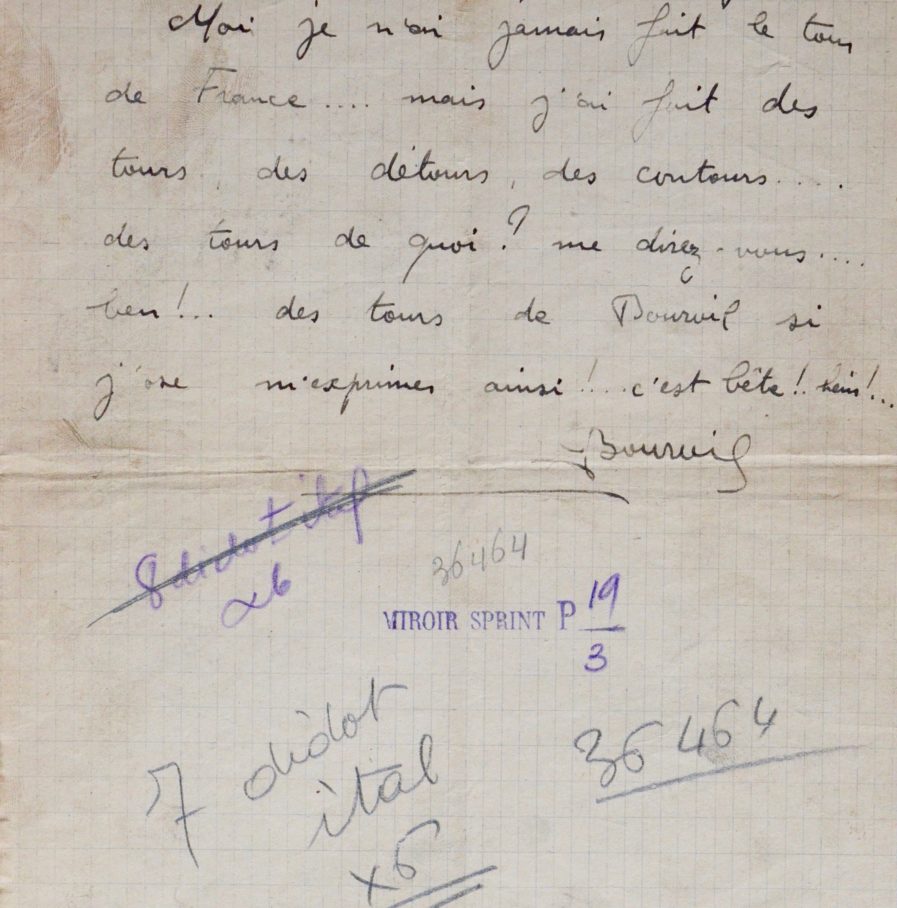 Moi je n'ai jamais fait le tour
de France .... mais j'ai fait des
tours, des détours, des contours....
des tours de quoi? me direz-vous....
ben!... des tours de Bourvil si
j'ose m'exprimer ainsi!... c'est bête!. hein!...
Bourvil
8 didot ital
x6
36464
MIROIR SPRINT P 19
3
7 didot
ital
x6
36464